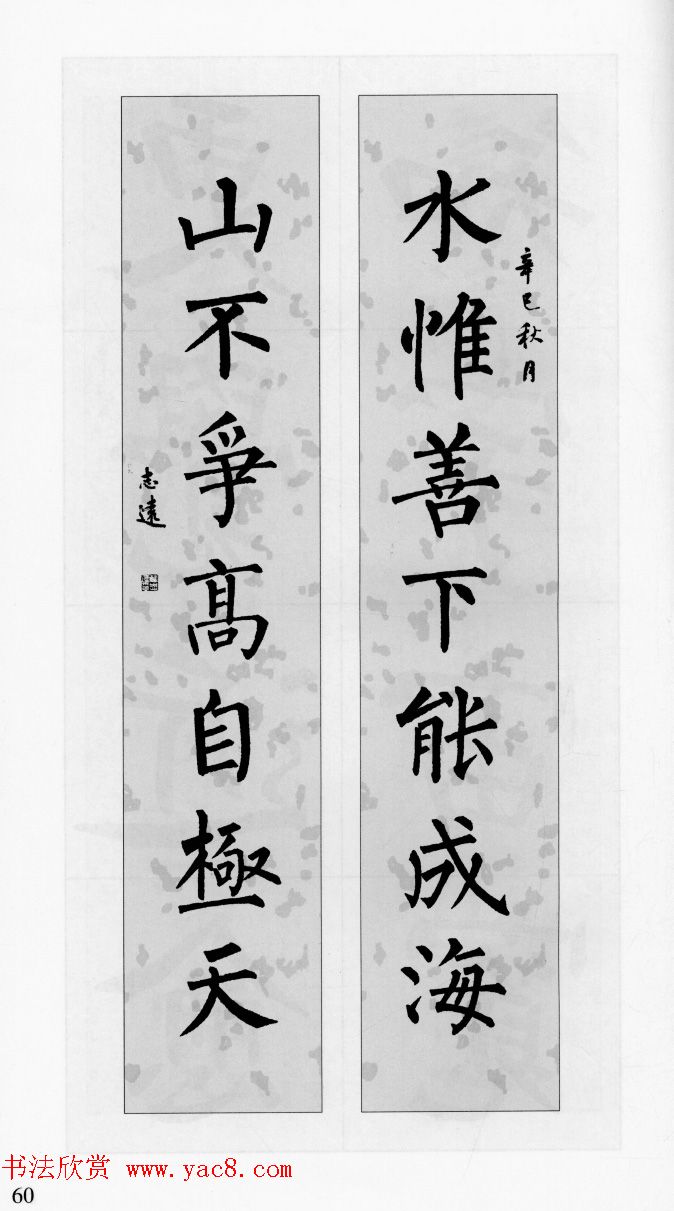 辛巳秋月
水惟善下能成海
山不爭高自極天
志遠
书法欣赏 www.yac8.com
60